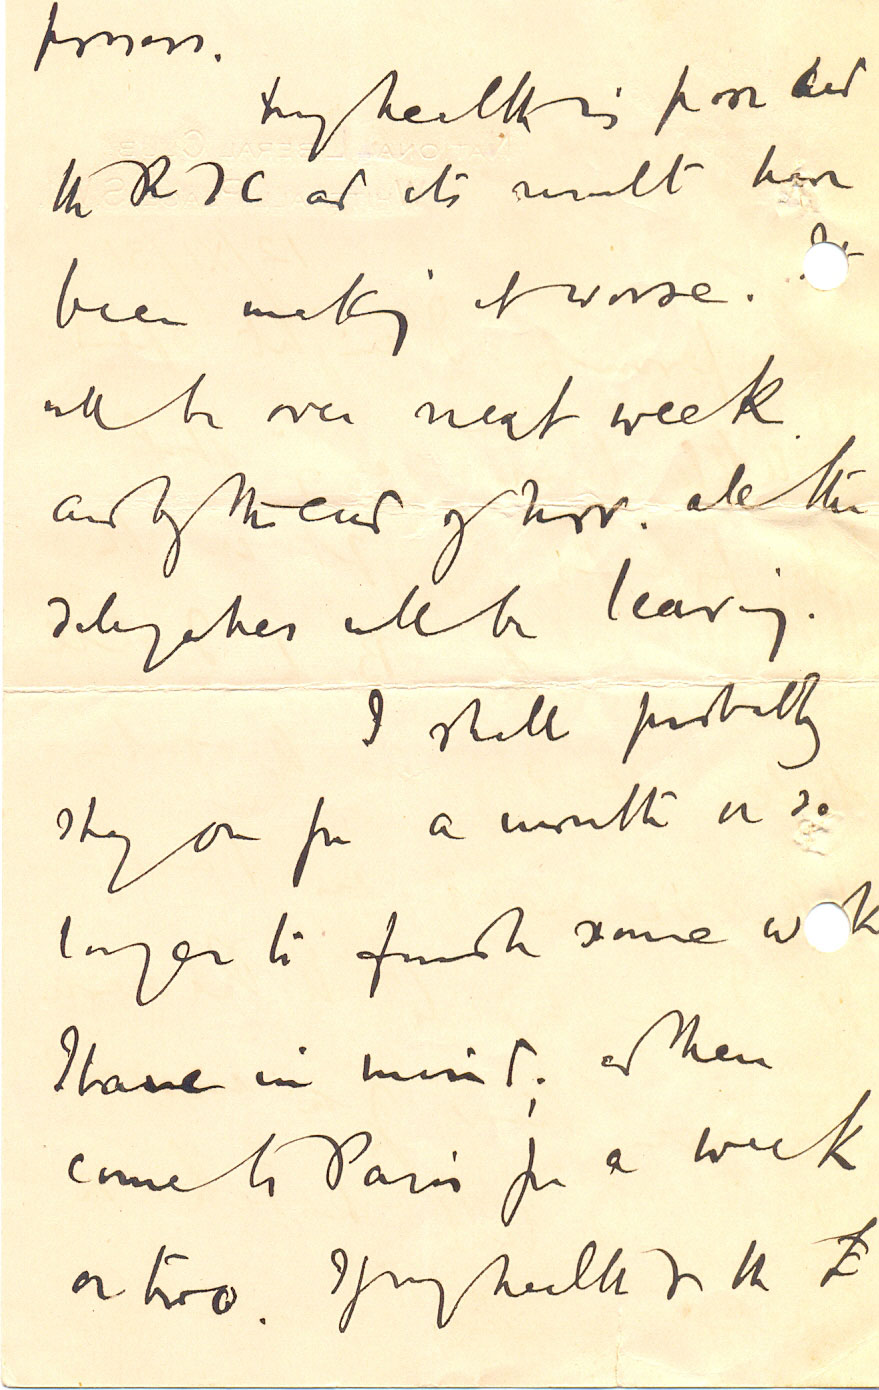 My health is poor and
the R T C and its result have
been making it worse. It
will be over next week
and by the end of Nov. all the
delegates will be leaving.
I shall probably
stay on for a month or so
longer to finish some work
I have in mind; and then
come to Paris for a week
or two. If my health & the £